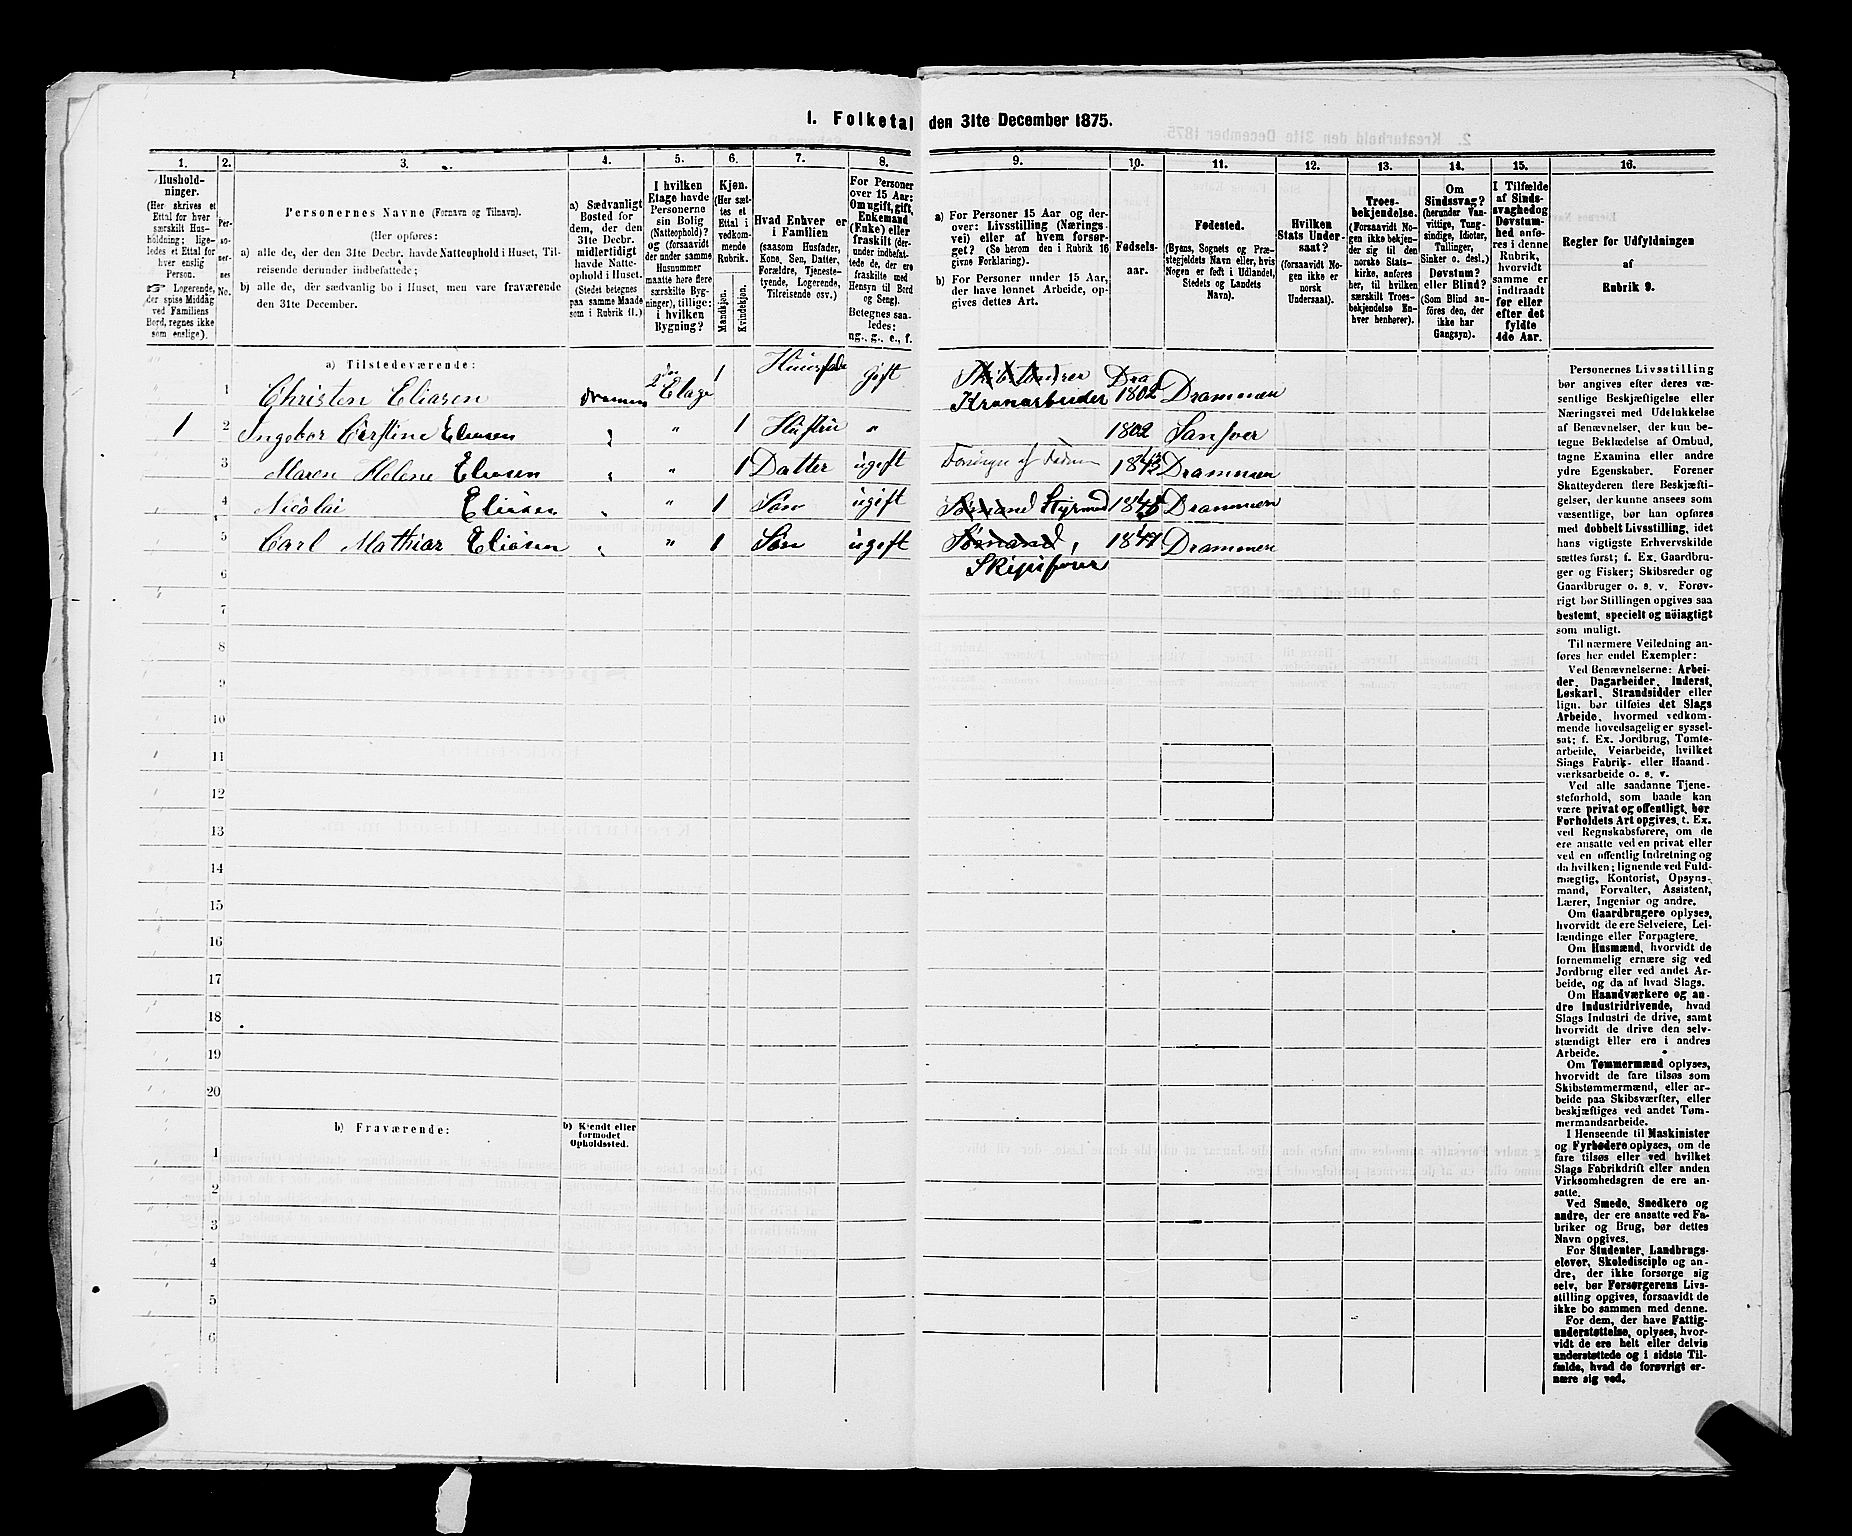 I. Folketal den 31te December 1875.
1. 2. 3. 4. 5. 6. 7. 8. 9. 10. 11. 12. 13. 14. 15. 16.
Hushold-
ninger.
(Her skrives et
Ettal for hver
særskilt Hus-
holdning; lige-
ledes et Ettal for
hver enslig
Person.
☞ Logerende,
der spise Middag
ved Familiens
Bord, regnes ikke
som enslige).
Per-
so-
ner-
nes
No.
Personernes Navne (Fornavn og Tilnavn).
(Her opføres:
a) alle de, der den 31te Decbr. havde Natteophold i Huset, Til-
reisende derunder indbefattede;
b) alle de, der sædvanlig bo i Huset, men vare fraværende
den 31te December.
a) Sædvanligt
Bosted for
dem, der den
31te Decbr.
midlertidigt
havde Natte-
ophold i Huset.
(Stedet betegnes
paa samme Maade
som i Rubrik 11.)
I hvilken
Etage havde
Personerne
sin Bolig
(Natteophold)?
og (forsaavidt
der under samme
Husnummer
maatte høre flere
særskilte Byg-
ninger), tillige:
i hvilken
Bygning?
Kjøn.
(Her sæt-
tes et
Ettal i
vedkom-
mende
Rubrik.
Mandkjøn.
Kvindekjøn.
Hvad Enhver er
i Familien
(saasom Husfader,
Kone, Søn, Datter,
Forældre, Tjeneste-
tyende, Logerende,
Tilreisende osv.)
For Personer
over 15 Aar:
Om ugift, gift,
Enkemand
(Enke) eller
fraskilt (der-
under indbefat-
tede de, der ere
fraskilte med
Hensyn til Bord
og Seng).
Betegnes saa-
ledes:
ug., g., e., f.
a) For Personer 15 Aar og der-
over: Livsstilling (Nærings-
vei) eller af hvem forsør-
get? (Se herom den i Rubrik 16
givne Forklaring).
b) For Personer under 15 Aar,
der have lønnet Arbeide, op-
gives dettes Art.
Fødsels-
aar.
Fødested.
(Byens, Sognets og Præ-
stegjeldets Navn eller, hvis
Nogen er født i Udlandet,
Stedets og Landets
Navn).
Hvilken
Stats Under-
saat?
(forsaavidt No-
gen ikke er
norsk
Undersaat).
Troes-
bekjendelse.
(Forsaavidt No-
gen ikke bekjen-
der sig til den
norske Stats-
kirke, anføres
her, til hvilken
særskilt Troes-
bekjendelse En-
hver henhører).
Om
Sindssvag?
(herunder Van-
vittige, Tung-
sindige, Idioter,
Tullinger,
Sinker o. desl.)
Døvstum?
eller Blind?
(Som Blind an-
føres den, der
ikke har
Gangsyn).
I Tilfælde
af Sinds-
svaghed og
Døvstum-
hed anfø-
res i denne
Rubrik,
hvorvidt
samme er
indtraadt
før eller
efter det
fyldte
4de Aar.
Regler for Udfyldningen
af
Rubrik 9.
a) Tilstedeværende:
1 Christen Eliasen Drammen 2den Etage 1 Huusfader gift Kronarbeider 1802 Drammen
1 2 Ingebor Eliasen " 1 Hustru " 1802 Sansver
3 Maren Helene Eliasen " 1 Datter ugift Drammen
4 Nicolai Eliasen " 1 Søn ugift Styrmand Drammen
5 Carl Mathias Eliasen " 1 Søn ugift Sømand, 1847 Drammen
Skipsfører
6
7
8
9
10
11
12
13
14
15
16
17
18
19
20
b) Fraværende:
b) Kjendt eller
formodet
Opholdssted.
1
2
3
4
5
6
Personernes Livsstilling
bør angives efter deres væ-
sentlige Beskjæftigelse eller
Næringsvei med Udelukkelse
af Benævnelser, der kun be-
tegne Beklædelse af Ombud,
tagne Examina eller andre
ydre Egenskaber. Forener
Skatteyderen flere Beskjæfti-
gelser, der kunne ansees som
væsentlige, bør han opføres
med dobbelt Livsstilling, idet
hans vigtigste Erhvervskilde
sættes først; f. Ex. Gaardbru-
ger og Fisker; Skibsreder og
Gaardbruger o. s. v. Forøv-
rigt bør Stillingen opgives saa
bestemt, specielt og nöiagtigt
som muligt.
Til nærmere Veiledning an-
føres her endel Exempler:
Ved Benævnelserne: Arbei-
der, Dagarbeider, Inderst,
Løskarl, Strandsidder eller
lign. bør tilføies det Slags
Arbeide, hvormed vedkom-
mende hovedsagelig er syssel-
sat; f. Ex. Jordbrug, Tomte-
arbeide, Veiarbeide, hvilket
Slags Fabrik- eller Haand-
værksarbeide o. s. v.
Ved alle saadanne Tjene-
steforhold, som baade kan
være privat og offentligt, bør
Forholdets Art opgives, t. Ex.
ved Regnskabsførere, om de
ere ansatte ved en privat eller
ved en offentlig Indretning og
da hvilken; lignende ved Fuld-
mægtig, Kontorist, Opsyns-
mand, Forvalter, Assistent,
Lærer, Ingeniør og andre.
Om Gaardbrugere oplyses,
hvorvidt de ere Selveiere, Lei-
lændinge eller Forpagtere.
Om Husmænd, hvorvidt de
fornemmelig ernære sig ved
Jordbrug eller ved andet Ar-
beide, og da af hvad Slags.
Om Haandværkere og an-
dre Industridrivende, hvad
Slags Industri de drive, samt
hvorvidt de drive den selv-
stændigt eller ere i andres
Arbeide.
Om Tømmermænd oplyses,
hvorvidt de fare tilsøs som
Skibstømmermænd, eller ar-
beide paa Skibsværfter, eller
beskjæftiges ved andet Tøm-
mermandsarbeide.
I Henseende til Maskinister
og Fyrbødere oplyses, om de
fare tilsøs eller ved hvilket
Slags Fabrikdrift eller anden
Virksomhedsgren de ere an-
satte.
Ved Smede, Snedkere og
andre, der ere ansatte ved Fa-
briker og Brug, bør dettes
Navn opgives.
For Studenter, Landbrugs-
elever, Skoledisciple og an-
dre, der ikke forsørge sig
selv, bør Forsørgerens Livs-
stilling opgives, forsaavidt de
ikke bo sammen med denne.
For dem, der have Fattig-
understøttelse, oplyses, hvor-
vidt de ere helt eller delvis
understøttede og i sidste Til-
fælde, hvad de forøvrigt er-
nære sig ved.